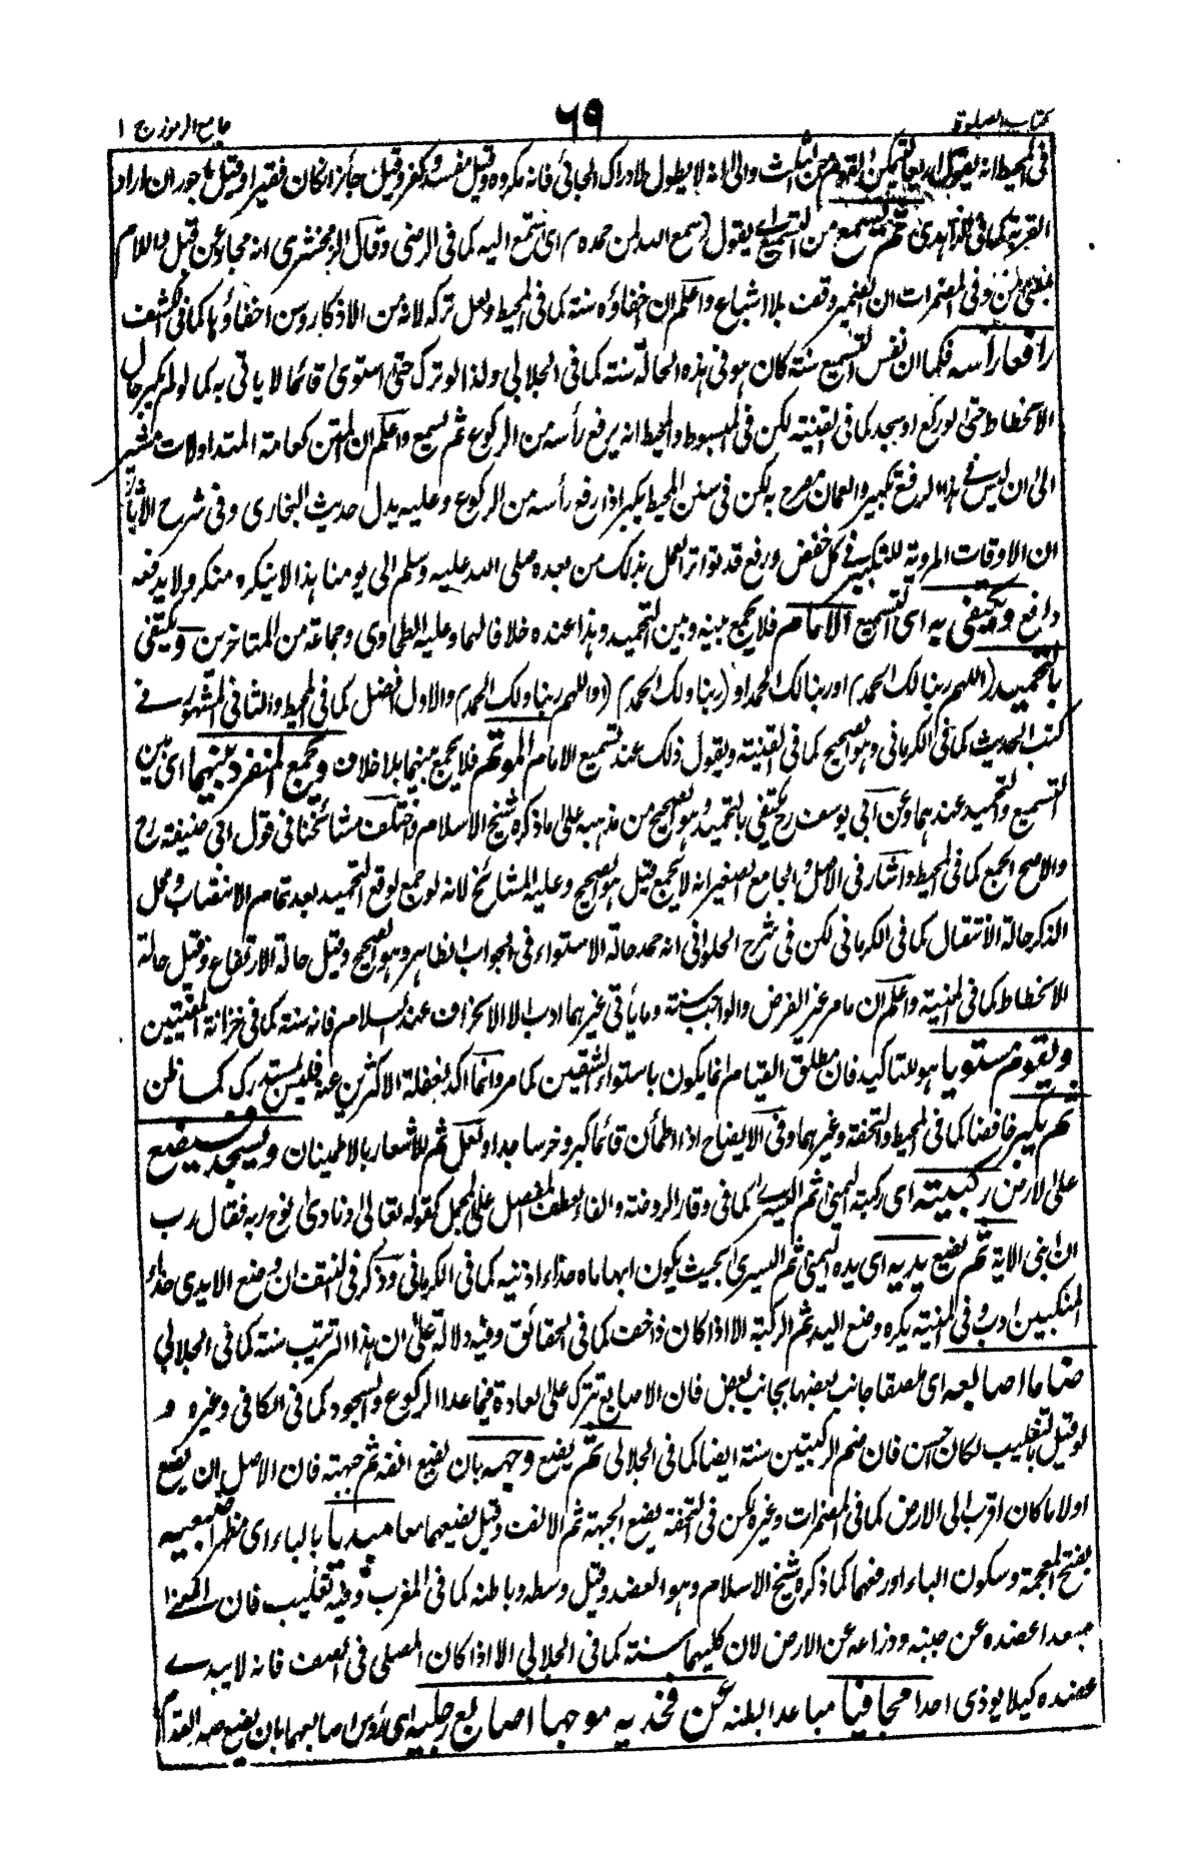 كتاب الصلوة
٦٩
جامع الرموز ج ١
فى المحيط انه يقول ربعا ليتمكن القوم من الثلث والى انه لا يطول لادراك الجائى فانه مكروه وقيل مفسد وكفر وقيل جائز ان كان فقيرا وقيل ماجور ان اراد
القربة كما فى الزاهدى ثم يسمع من التسميع اى يقول (سمع الله لمن حمده) اى استمع اليه كما فى الرضى وقال الزمخشرى انه مجاز عن قبل واللام
بمعنى من وفى المضمرات ان الضمير وقف بلا اشباع واعلم ان اخفاؤه سنة كما فى المحيط ولعل تركه لانه من الاذكار ومن اخفاؤها كما فى الكشف
رافعا رأسه فكما ان نفس التسميع سنة كان هو فى هذه الحالة سنة كما فى الجلابى ولذا لو ترك حتى استوى قائما لا ياتى به كما لو لم يكبر حال
الانحطاط حتى لو ركع او سجد كما فى القنية لكن فى المبسوط والمحيط انه يرفع رأسه من الركوع ثم يسمع واعلم ان المتن كعامة المتداولات مشير
الى ان ليس فى هذا الرفع تكبير والعمان مصرح به لكن فى سنن المحيط يكبر اذا رفع رأسه من الركوع وعليه يدل حديث البخارى وفى شرح الآثار
ان الاوقات المروية للتكبير فى كل خفض ورفع قد تواتر العمل بذلك من بعده صلى الله عليه وسلم الى يومنا هذا لا ينكره منكر ولا يدفعه
دافع ويكتفى به اى التسميع الامام فلا يجمع بينه وبين التحميد وهذا عنده خلافا لهما وعليه الطحاوى وجماعة من المتاخرين ويكتفى
بالتحميد (اللهم ربنا لك الحمد) او ربنا لك الحمد او (ربنا ولك الحمد) (او اللهم ربنا ولك الحمد) والاول افضل كما فى المحيط والثانى المشهور فى
كتب الحديث كما فى الكرمانى وهو الصحيح كما فى القنية ويقول ذلك عند تسميع الامام الموتم فلا يجمع بينهما بلا خلاف ويجمع المنفرد بينهما اى بين
التسميع والتحميد عندهما وعن ابى يوسف رح يكتفى بالتحميد وهو الصحيح من مذهبه على ما ذكره شيخ الاسلام واختلف مشائخنا فى قول ابى حنيفة رح
والاصح الجمع كما فى المحيط واشار فى الاصل والجامع الصغير انه لا يجمع قيل هو الصحيح وعليه المشائخ لانه لو جمع لوقع التحميد بعد تمام الانتصاب ومحل
الذكر حالة الانتقال كما فى الكرمانى لكن فى شرح الحلوانى انه حمد حالة الاستواء فى الجواب الظاهر وهو الصحيح وقيل حالة الارتفاع وقيل حالة
الانحطاط كما فى المنية واعلم ان ما مر غير الفرض والواجب سنة وما ياتى غيرهما ادب الا الانحراف عند السلام فانه سنة كما فى خزانة المفتيين
ويقوم مستويا هو للتاكيد فان مطلق القيام انما يكون باستواء الشقين كما مر وانما اكد لغفلة الاكثرين عنه فليس بمستدرك كما ظن
ثم يكبر خافضا كما فى المحيط والتحفة وغيرهما وفى الايضاح اذا اطمأن قائما كبر وخر ساجدا ولعل ثم للاشعار بالاطمينان ويسجد فيضع
على الارض ركبتيه اى ركبته اليمنى ثم اليسرى كما فى وقار الروضة والفاء لعطف المفصل على المجمل كقوله تعالى ونادى نوح ربه فقال رب
ان ابنى الاية ثم يضع يديه اى يده اليمنى ثم اليسرى بحيث يكون ابهاماه حذاء اذنيه كما فى الكرمانى وذكر فى النتف ان وضع الايدى حذاء
المنكبين ادب وفى المنية يكره وضع اليد ثم الركبة الا اذا كان ذا خف كما فى الحقائق وفيه دلالة على ان هذا الترتيب سنة كما فى الجلابى
ضاما اصابعه اى ملصقا جانب بعضها بجانب بعض فان الاصابع تترك على العادة فيما عدا الركوع والسجود كما فى الكافى وغيره و
لو قيل بالتغليب لكان احسن فان ضم الركبتين سنة ايضا كما فى الجلابى ثم يضع وجهه بان يضع انفه ثم جبهته فان الاصل ان يضع
اولا ما كان اقرب الى الارض كما فى المضمرات وغيره لكن فى التحفة يضع الجبهة ثم الانف وقيل يضعهما معا مبديا بالباء اى مظهرا ضبعيه
بفتح المعجمة وسكون الباء او رفعها كما ذكره شيخ الاسلام وهو العضد وقيل وسطه وباطنه كما فى المغرب وفيه تغليب فان المعنى
مبعدا عضده عن جنبه وذراعه عن الارض لان كليهما سنة كما فى الجلابى الا اذا كان المصلى فى الصف فانه لا يبدى
عضده كيلا يوذى احدا مجافيا مباعدا بطنه عن فخذيه موجها اصابع رجليه اى رؤس اصابعهما بان يضع صدر القدم